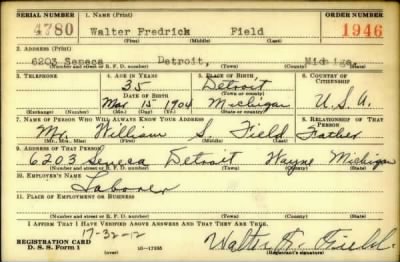 SERIAL NUMBER 1. NAME (Print) ORDER NUMBER
4780 Walter Fredrick Field 1946
(First) (Middle) (Last)
2. ADDRESS (Print)
6203 Seneca Detroit, Michiga,
(Number and street or R. F. D. number) (Town) (County) (State)
3. TELEPHONE 4. AGE IN YEARS 5. PLACE OF BIRTH 6. COUNTRY OF CITIZENSHIP
35 Detroit
DATE OF BIRTH (Town or county)
Mar 15 1904 Michigan U.S.A.
(Exchange) (Number) (Mo.) (Day) (Yr.) (State or country)
7. NAME OF PERSON WHO WILL ALWAYS KNOW YOUR ADDRESS 8. RELATIONSHIP OF THAT PERSON
Mr. William S. Field Father
(Mr., Mrs., Miss) (First) (Middle) (Last)
9. ADDRESS OF THAT PERSON
6203 Seneca Detroit Wayne Michigan
(Number and street or R. F. D. number) (Town) (County) (State)
10. EMPLOYER'S NAME
Laborer
11. PLACE OF EMPLOYMENT OR BUSINESS
(Number and street or R. F. D. number) (Town) (County) (State)
I AFFIRM THAT I HAVE VERIFIED ABOVE ANSWERS AND THAT THEY ARE TRUE.
17-32-12
REGISTRATION CARD
D. S. S. Form 1 (over) 16-17105 Walter F. Field.
(Registrant's signature)